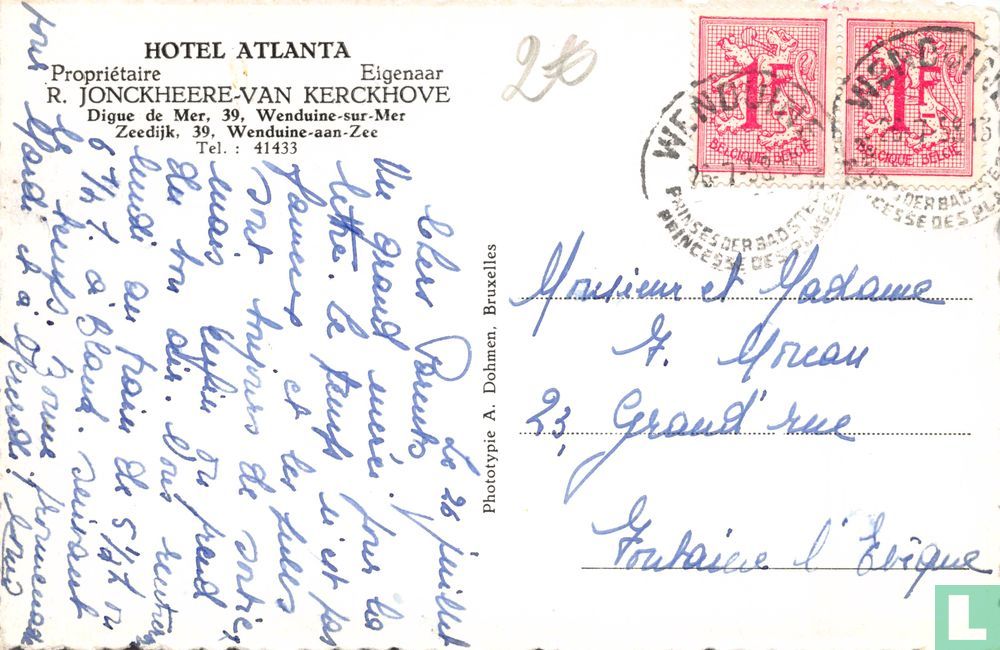 HOTEL ATLANTA
Propriétaire Eigenaar
R. JONCKHEERE-VAN KERCKHOVE
Digue de Mer, 39, Wenduine-sur-Mer
Zeedijk, 39, Wenduine-aan-Zee
Tel. : 41433
20
1F
BELGIQUE-BELGIË
1F
BELGIQUE-BELGIË
WENDUINE
26-7-58
PRINSES DER BADSTEDEN
PRINCESSE DES PLAGES
Phototype A. Dohmen, Bruxelles
Le 26 juillet
Chers Parents
Un grand merci pour la
lettre. Le temps n'est pas
fameux et les filles
sont toujours de sortie,
mais enfin on prend
du bon air. Nous rentrons
lundi au train de 5 1/2 h ou
6 1/2 h. à Bland. suivant
le temps. Bonne promenade
mardi et à mercredi. Nous
tous
Monsieur et Madame
F. Moreau
23, Grand'rue
Fontaine l'Evêque
L